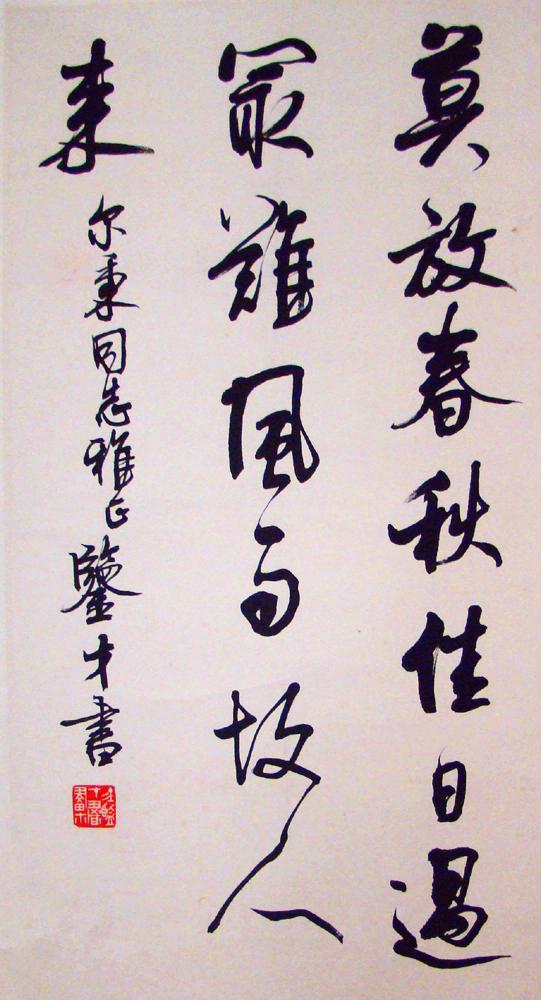 莫放春秋佳日過
最難風雨故人
來
尔秉同志雅正 鑒才書